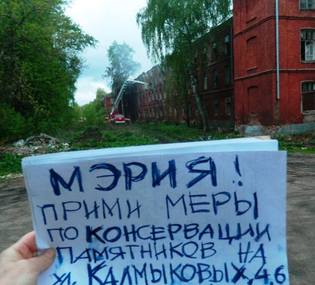 МЭРИЯ!
ПРИМИ МЕРЫ
ПО КОНСЕРВАЦИИ
ПАМЯТНИКОВ НА
УЛ. КАЛМЫКОВЫХ, 4,6